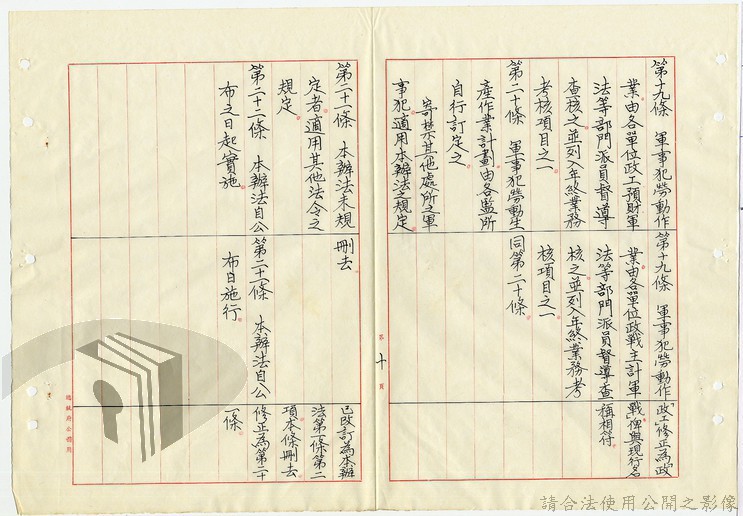 第十九條　軍事犯勞動作
業由各單位政工預財軍
法等部門派員督導
查核之並列入年終業務
考核項目之一
第二十條　軍事犯勞動生
產作業計劃由各監所
自行訂定之
寄禁其他處所之軍
事犯適用本辦法之規定
第十九條　軍事犯勞動作
業由各單位政戰主計軍
法等部門派員督導查
核之並列入年終業務考
核項目之一
同第二十條
「政工」修正為「政
戰」俾與現行名
稱相符
第十頁
第二十一條　本辦法未規
定者適用其他法令之
規定
第二十二條　本辦法自公
布之日起實施
刪去
第二十一條　本辦法自公
布日施行
已改訂為本辦
法第一條第二
項本條刪去
修正為第二十
一條
總統府公務用
請合法使用公開之影像